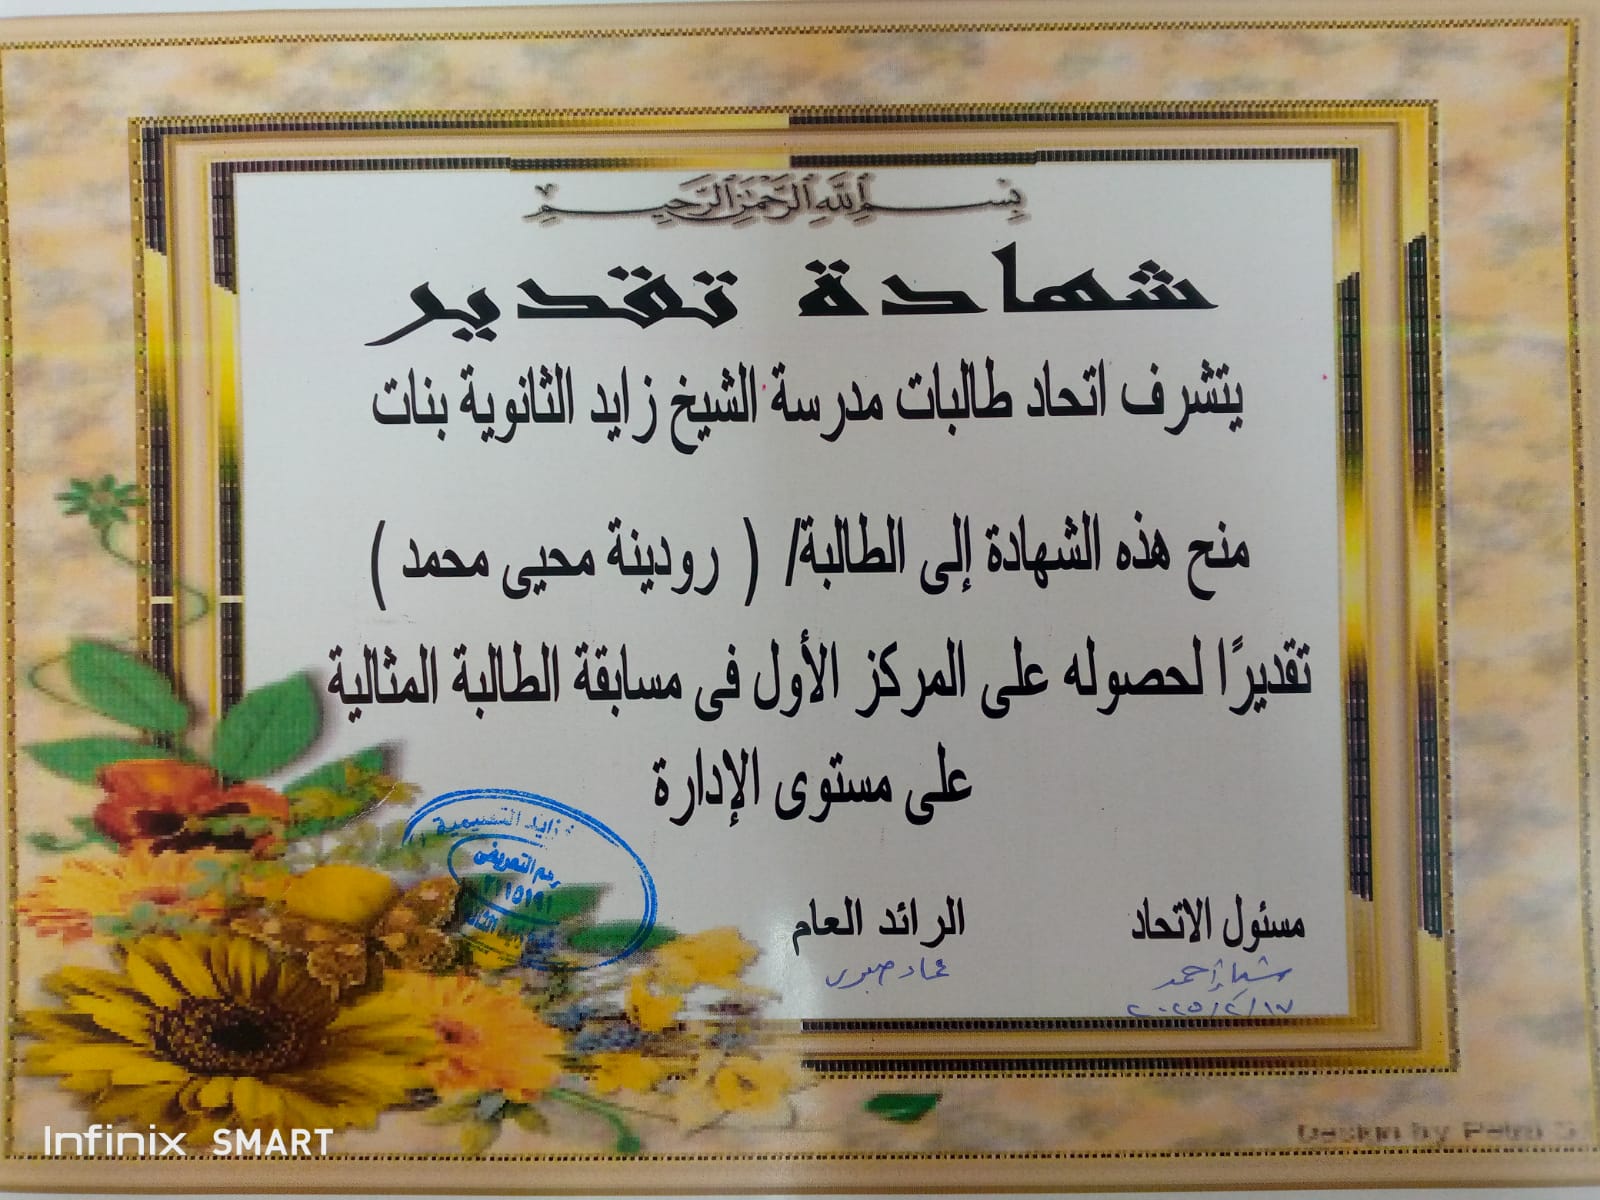 بسم الله الرحمن الرحيم
شهادة تقدير
يتشرف اتحاد طالبات مدرسة الشيخ زايد الثانوية بنات
منح هذه الشهادة إلى الطالبة/ ( رودينة محيى محمد )
تقديرًا لحصوله على المركز الأول فى مسابقة الطالبة المثالية
على مستوى الإدارة
زايد التعليمية
رقم التعريفى
٢١١٥١٩١
مسئول الاتحاد
الرائد العام
شيماء أحمد
عماد صبرى
٢٠٢٥/٢/١٧
Infinix SMART
Design by